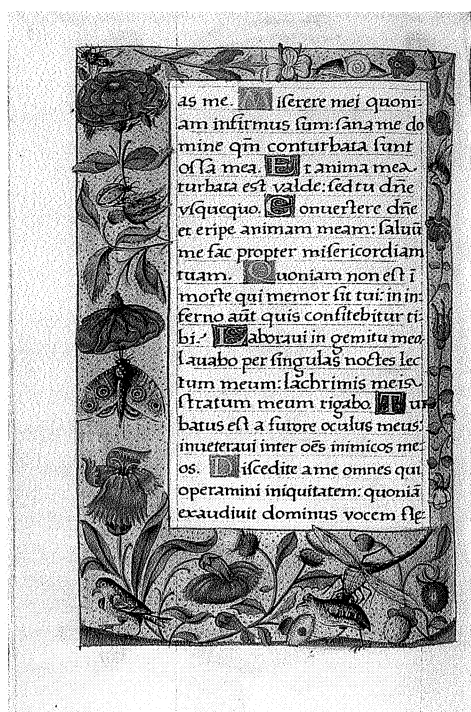 as me. Miserere mei quoni-
am infirmus sum: sana me do
mine qm̄ conturbata sunt
ossa mea. Et anima mea
turbata est valde: sed tu dn̄e
vsquequo. Conuertere dn̄e
et eripe animam meam: saluū
me fac propter misericordiam
tuam. Quoniam non est ī
morte qui memor sit tui: in in-
ferno aūt quis confitebitur ti-
bi. Laboraui in gemitu meo
lauabo per singulas noctes lec
tum meum: lachrimis meis
stratum meum rigabo. Tur
batus est a furore oculus meus:
inueteraui inter oēs inimicos me-
os. Discedite a me omnes qui
operamini iniquitatem: quoniā
exaudiuit dominus vocem fle-